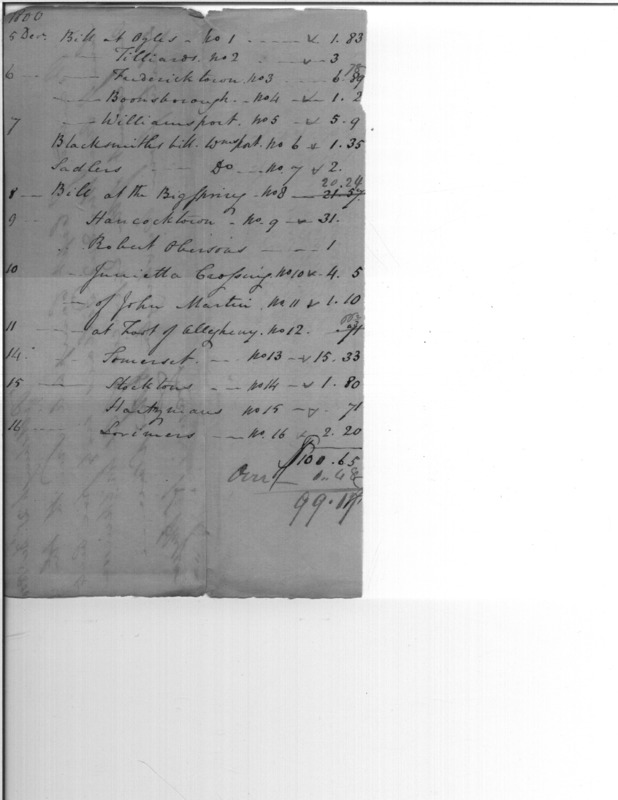 1800
5 Decr. Bill at Ogles - No 1 - 1.83
Tilliards. no 2 - 3
6 - Fredericktown. no 3 - 6.89
78
Boonsborough - no 4 - 1.2
7 - Williamsport. no 5 - 5.9
Blacksmiths bill. Wmsport. no 6 1.35
Sadlers Do - no 7 2.
20.24
8 - Bill at the Big Spring - No 8 - 21.57
9 Hancocktown - no. 9 - 31.
Robert - 1
10 - Juniatta Crossing No 10 4. 5
of John Martin No 11 1.10
11 - at Foot of Allegheny. no 12.
14 Somerset. - no 13 - 15.33
15 - Stocktons - no 14 - 1.80
no 15 - 71
16 - Lorimers - no. 16 2.20
$100.65
1.48
99.17